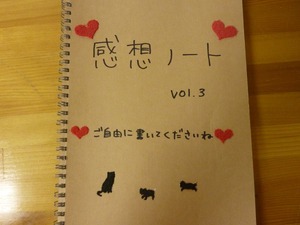 感想ノート
vol.3
ご自由に書いてくださいね